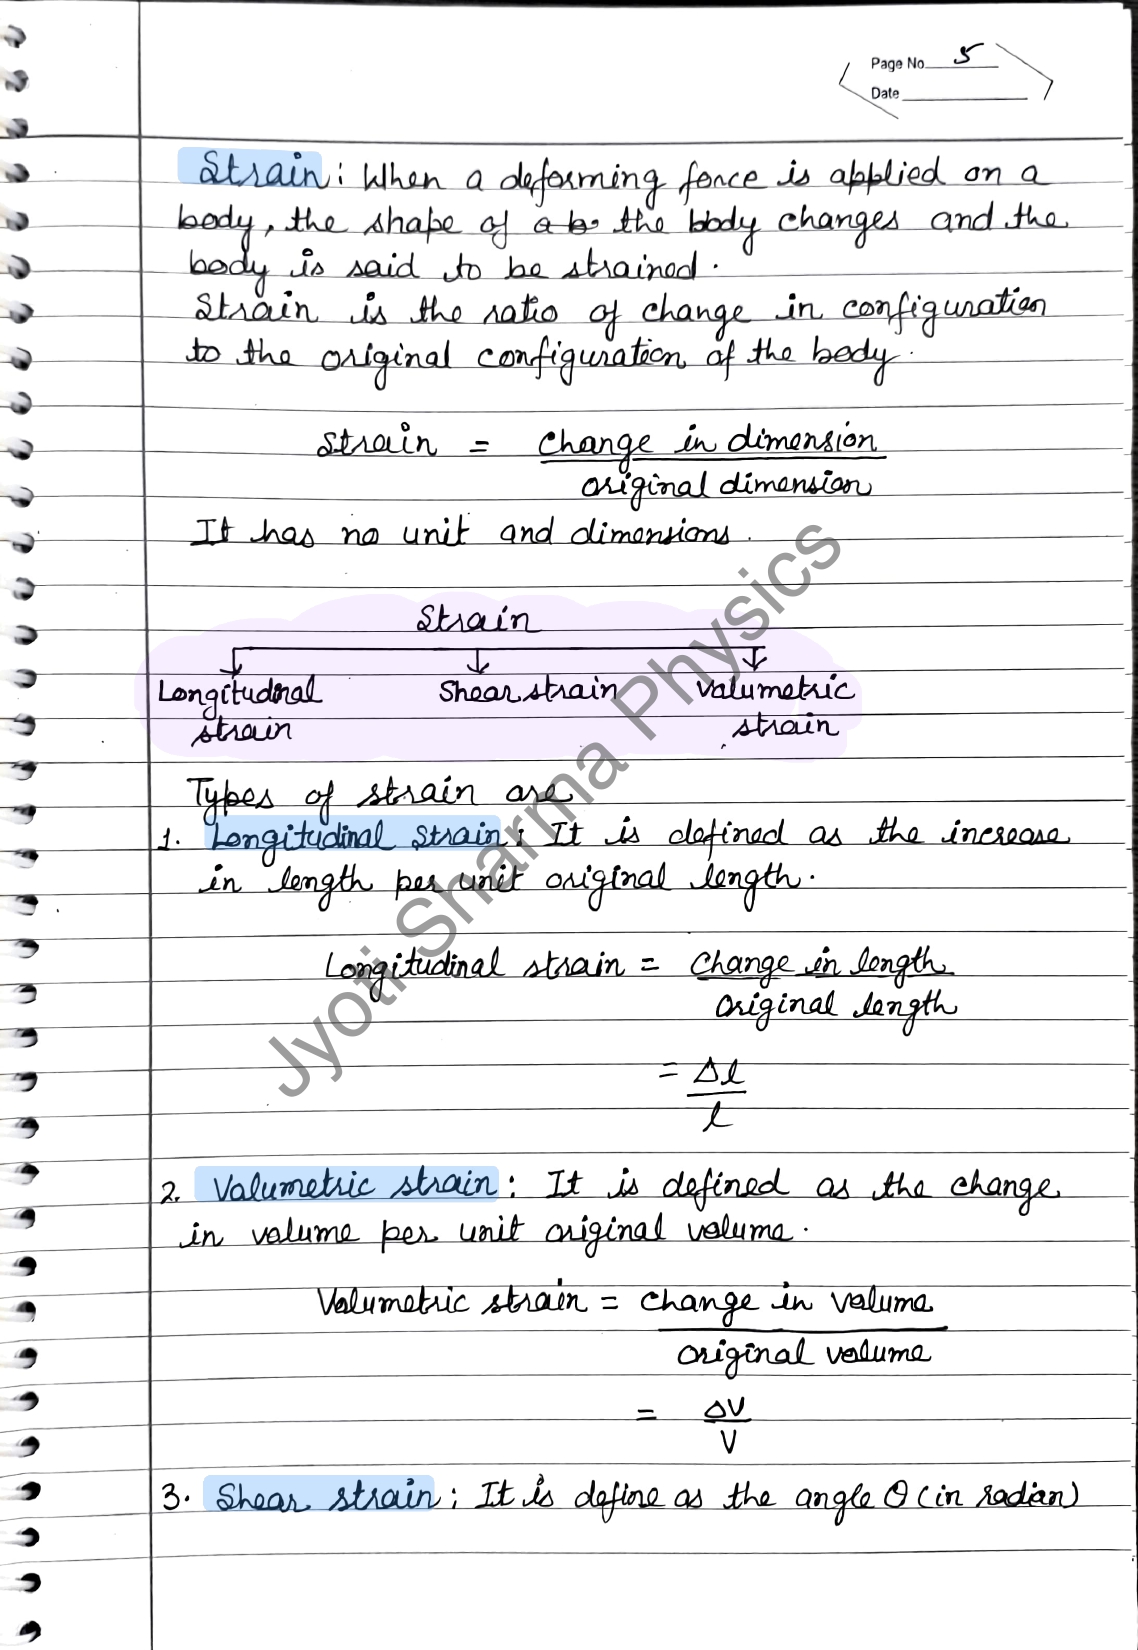 Page No. 5
Date
Strain : When a deforming force is applied on a
body, the shape of a bo the body changes and the
body is said to be strained.
Strain is the ratio of change in configuration
to the original configuration of the body.
Strain = change in dimension
original dimension
It has no unit and dimensions.
Strain
Longitudinal strain
Shear strain
Volumetric strain
Types of strain are
1. Longitudinal strain : It is defined as the increase
in length per unit original length.
Longitudinal strain = change in length
original length
= Δl
l
2. Volumetric strain : It is defined as the change
in volume per unit original volume.
Volumetric strain = change in volume
original volume
= ΔV
V
3. Shear strain : It is define as the angle θ (in radian)
Jyoti Sharma Physics